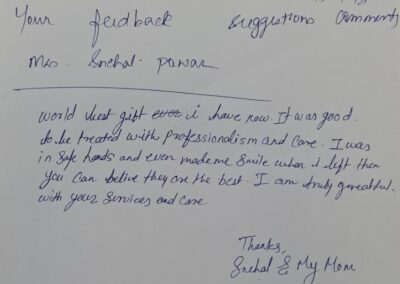 Your feedback suggestions comments
Mrs. Snehal. pawar
world best gift ever i have now It was good.
to be treated with professionalism and care. I was
in safe hands and even made me smile when i left then
you can belive they are the best. I am truly greatful.
with your services and care
Thanks,
Snehal & My Mom